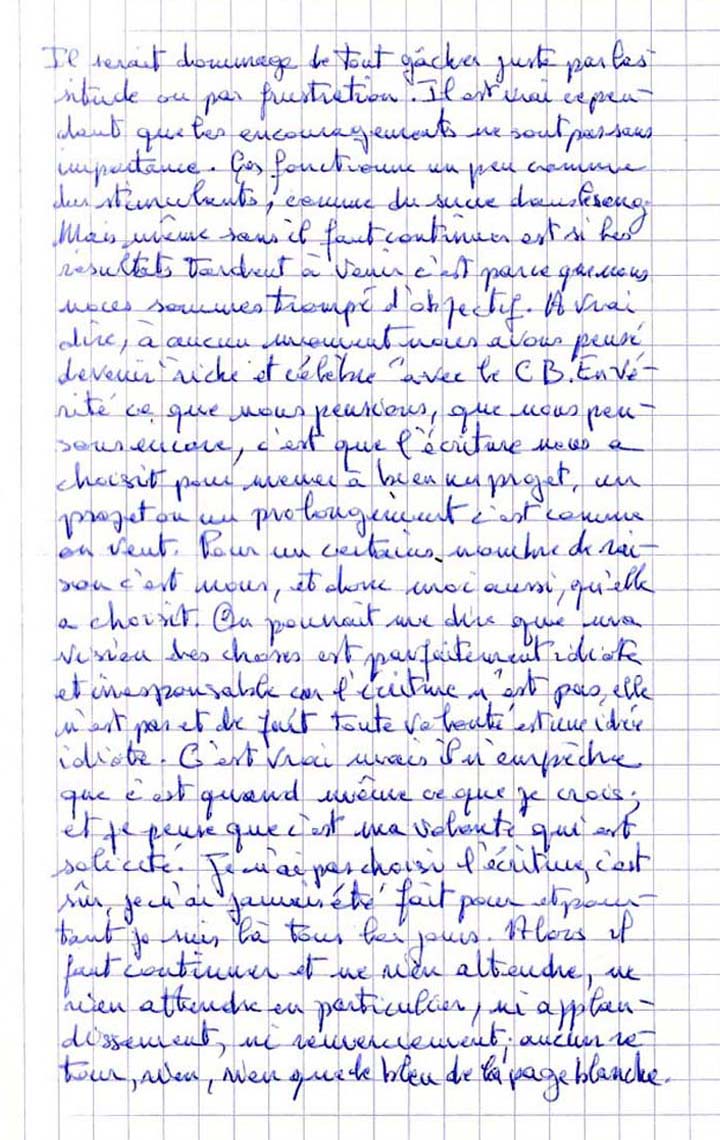 Il serait dommage de tout gâcher juste par las-
situde ou par frustration. Il est vrai cepen-
dant que les encouragements ne sont pas sans
importance. Ças fonctionne un peu comme
des stimulants, comme du sucre dans le sang.
Mais même sans il faut continuer et si les
résultats tardent à venir c'est parce que nous
nous sommes trompé d'objectif. A vrai
dire, à aucun moment nous avons pensé
devenir "riche et célèbre" avec le CB. En vé-
rité ce que nous pensions, que nous pen-
sons encore, c'est que l'écriture nous a
choisit pour mener à bien un projet, un
projet ou un prolongement c'est comme
on veut. Pour un certains nombre de rai-
son c'est nous, et donc moi aussi, qu'elle
a choisit. On pourrait me dire que ma
vision des choses est parfaitement idiote
et irresponsable car l'écriture n'est pas, elle
n'est pas et de fait toute volonté est une idée
idiote. C'est vrai mais il n'empèche
que c'est quand même ce que je crois;
et je pense que c'est ma volonté qui est
solicité. Je n'ai pas choisi l'écriture, c'est
sûr, je n'ai jamais été fait pour et pour-
tant je suis là tous les jours. Alors il
faut continuer et ne rien attendre, ne
rien attendre en particulier, ni applau-
dissement, ni remerciement, aucun re-
tour, rien, rien que le bleu de la page blanche.